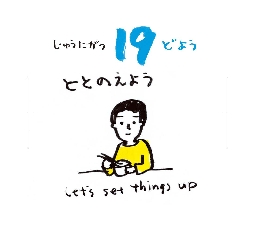 じゅうにがつ 19 どよう
ととのえよう
Let's set things up